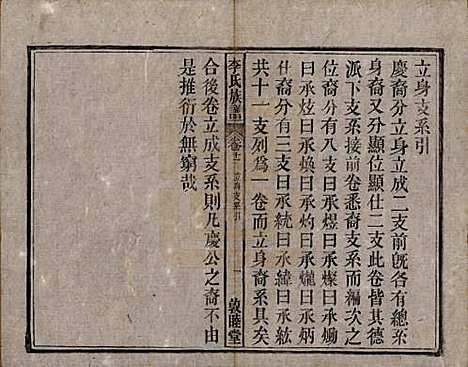 立身支系引
慶裔分立身立成二支前旣各有總系
身裔又分顯位顯仕二支此卷皆其德
派下支系接前卷悉裔支系而編次之
位裔分有八支曰承煜曰承燦曰承
曰承炫曰承煥曰承灼曰承爌曰承炳
仕裔分有三支曰承統曰承緯曰承紘
共十一支列爲一卷而立身裔系具矣
李氏族譜
支系引
敦睦堂
合後卷立成支系則凡慶公之裔不由
是推衍於無窮哉